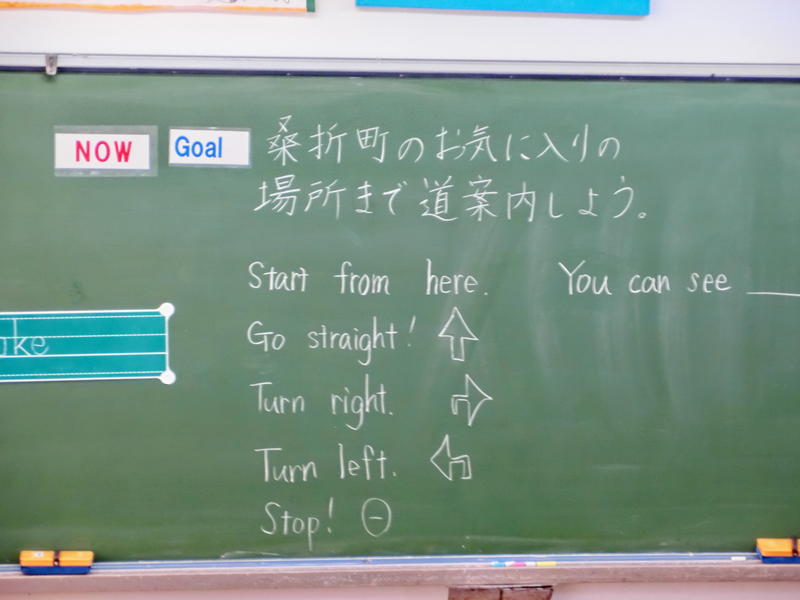 NOW Goal 桑折町のお気に入りの
場所まで道案内しよう。
Start from here. You can see
Go straight!
oke
Turn right.
Turn left.
Stop!